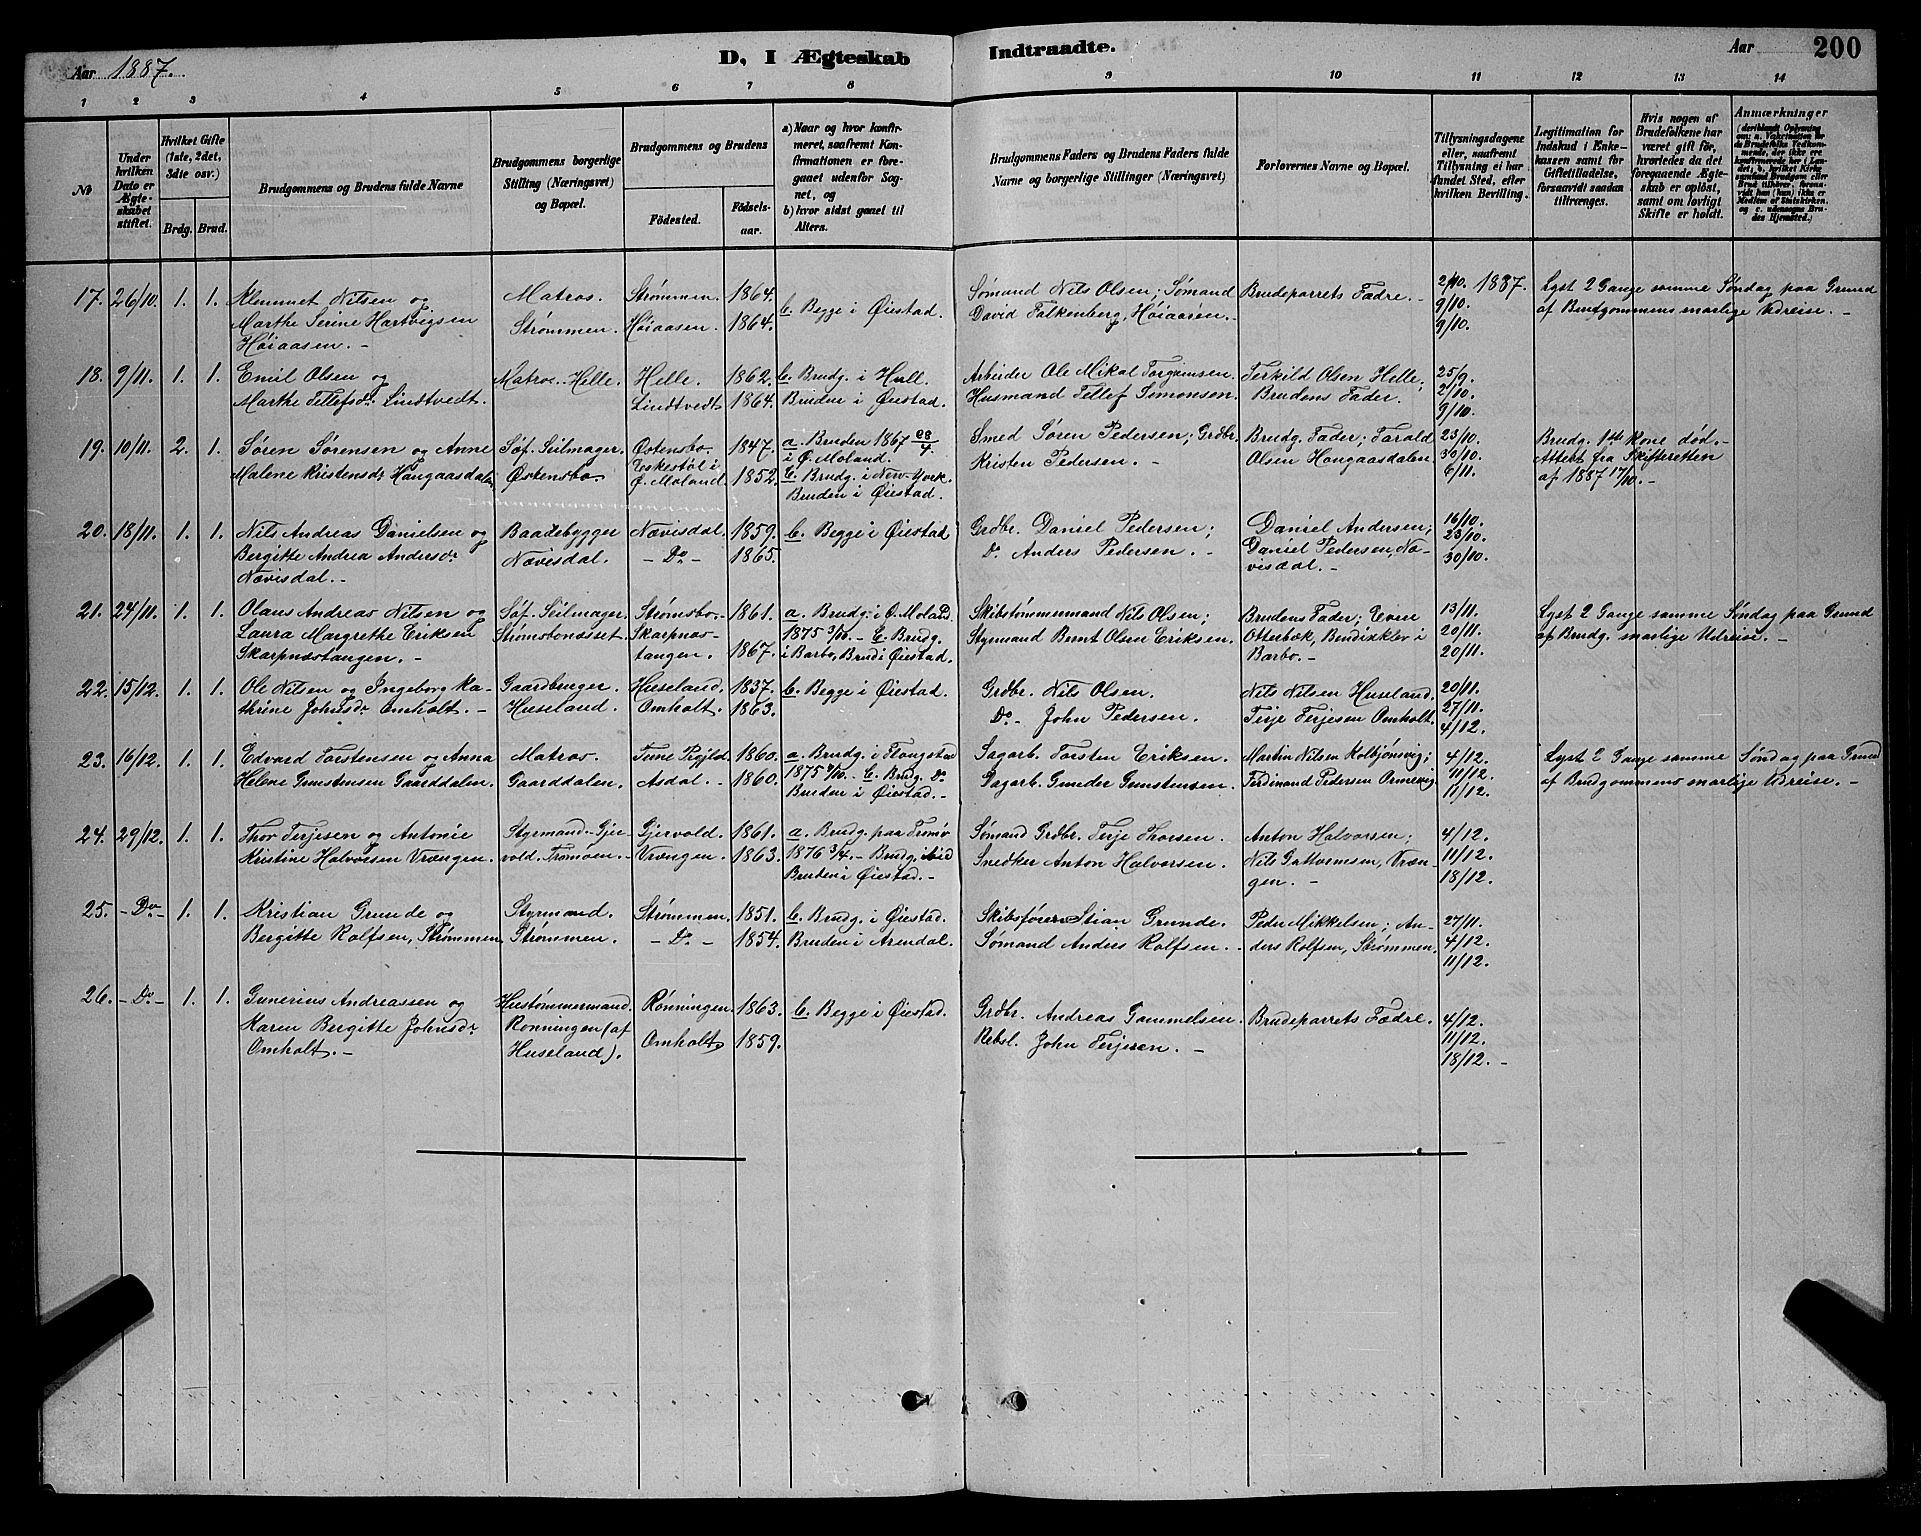 Aar 1887.
D. I Ægteskab Indtraadte.
Aar 200
1 2 3 4 5 6 7 8 9 10 11 12 13 14
No
Under hvilken Dato er Ægteskabet stiftet.
Hvilket Gifte (1ste, 2det, 3dte osv.)
Brdg. Brud.
Brudgommens og Brudens fulde Navne
Brudgommens borgerlige Stilling (Næringsvei) og Bopæl.
Brudgommens og Brudens
Födested.
Födsels-aar.
a) Naar og hvor konfirmeret, saafremt Konfirmationen er foregaaet udenfor Sognet, og
b) hvor sidst gaaet til Alters.
Brudgommens Faders og Brudens Faders fulde Navne og borgerlige Stillinger (Næringsvei)
Forlovernes Navne og Bopæl.
Tillysningsdagene eller, saafremt Tillysning ei har fundet Sted, efter hvilken Bevilling.
Legitimation for Indskud i Enkekassen samt for Giftetilladelse, forsaavidt saadan tiltrænges.
Hvis nogen af Brudefolkene har været gift för, hvorledes da det foregaaende Ægteskab er oplöst, samt om lovligt Skifte er holdt.
Anmærkninger
17. 26/10. 1. 1. Klemmet Nilsen og Matros. Strømmen. 1864. b. Begge i Øiestad. Sømand Nils Olsen; Sømand Brudeparrets Fædre. 2/10. 1887. Lyst 2 Gange samme Søndag paa Grund
Marthe Serine Hartvigsen Strømmen. Høiaasen. 1864. David Falkenberg, Høiaasen. 9/10. af Brudgommens snarlige Udreise.
Høiaasen. 9/10.
18. 9/11. 1. 1. Emil Olsen og Matros. Helle. Helle. 1862. b. Brudg. i Hull. Arbeider Ole Mikal Torgensen. Terkild Olsen Helle; 25/9.
Marthe Tellefsdr. Lindtvedt. Lindtvedt. 1864. Bruden i Øiestad. Husmand Tellef Simonsen. Brudens Fader. 2/10.
9/10.
19. 10/11. 2. 1. Søren Sørensen og Anne Søf. Seilmager. Østensbo. 1847. a. Bruden 1867 28/4 Smed Søren Pedersen; Grdbr. Brudg. Fader; Tarald 23/10. Brudg. 1ste Kone død.
Malene Kristensdr. Haugaasdalen Østensbo. Eskestøl i Ø. Moland. 1852. i Ø. Moland. Kristen Pedersen. Olsen Haugaasdalen. 30/10. Attest fra Skifteretten
b. Brudg. i New-York. 6/11. af 1887 17/10.
Bruden i Øiestad.
20. 18/11. 1. 1. Nils Andreas Danielsen og Baadebygger Nævisdal. 1859. b. Begge i Øiestad Grdbr. Daniel Pedersen; Daniel Andersen; 16/10.
Bergitte Andrea Andersdr. Nævisdal. - Do - 1865. Do. Anders Pedersen. Daniel Pedersen, Næ- 23/10.
Nævisdal. visdal. 30/10.
21. 24/11. 1. 1. Olaus Andreas Nilsen og Søf. Seilmager. Strømsbo. 1861. a. Brudg. i Ø. Moland Skibstømmermand Nils Olsen; Brudens Fader; Even 13/11. Lyst 2 Gange samme Søndag paa Grund
Laura Margrethe Eriksen Strømsbonæsset. Skarpnæs- 1875 3/10. b. Brudg. Styrmand Bernt Olsen Eriksen. Ottebæk, Bendixklev i 20/11. af Brudg. snarlige Udreise.
Skarpnæstangen. tangen. 1867. i Barbo, Brud i Øiestad. Barbo. 20/11.
22. 15/12. 1. 1. Ole Nilsen og Ingeborg Ka- Gaardbruger. Huseland. 1837. b. Begge i Øiestad. Grdbr. Nils Olsen. Nils Nilsen Huseland. 20/11.
thrine Johnsdr. Omholt. Huseland. Omholt. 1863. Do. John Pedersen. Terje Terjesen Omholt. 27/11.
4/12.
23. 16/12. 1. 1. Edvard Torstensen og Anna Matros. Tune 1860. a. Brudg. i Flangstad Sagarb. Torsten Eriksen. Martin Nilsen Kolbjønsvig; 4/12. Lyst 2 Gange samme Søndag paa Grund
Helene Gunstensen Gaarddalen. Gaarddalen. Asdal. 1860. 1875 b. Brudg. Do. Sagarb. Gunder Gunstensen. Ferdinand Pedersen 11/12. af Brudgommens snarlige Udreise.
Bruden i Øiestad. 11/12.
24. 29/12. 1. 1. Thor Terjesen og Antonie Styrmand. Gjer- Gjervold. 1861. a. Brudg. paa Tromø Sømand Grdbr. Terje Thorsen. Anton Halvorsen; 4/12.
Kristine Halvorsen Vrængen. vold. Tromøen. Vrængen. 1863. 1876 3/4. Brudg. ibid Snedker Anton Halvorsen. Nils Guttormsen, Vræn- 11/12.
Bruden i Øiestad. gen. 18/12.
25. - Do - 1. 1. Kristian Grunde og Styrmand. Strømmen. 1851. b. Brudg. i Øiestad. Skibsfører Stian Grunde. Peder Mikkelsen; An- 27/11.
Bergitte Rolfsen, Strømmen. Strømmen. - Do - 1854. Bruden i Arendal. Sømand Anders Rolfsen. ders Rolfsen, Strømmen. 4/12.
11/12.
26. - Do - 1. 1. Gunerius Andreassen og Hustømmermand Rønningen. 1863. b. Begge i Øiestad. Grdbr. Andreas Gammelsen. Brudeparrets Fædre. 4/12.
Karen Bergitte Johnsdr. Rønningen (af Omholt. 1859. Rebsl. John Terjesen. 11/12.
Omholt. Huseland). 18/12.